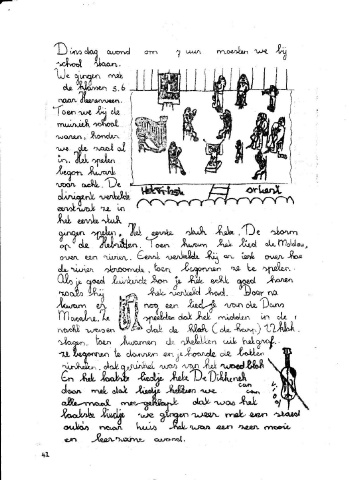 Dinsdag avond om 7 uur moesten we bij
school staan.
We gingen met
de klassen 5.6
naar Heerenveen.
Toen we bij de
muziek school
waren, konden
we de zaal al
in. Het spelen
begon kwart
voor acht. De
dirigent vertelde
eerst wat ze in
het eerste stuk
Het Friesk orkent
gingen spelen. Het eerste stuk hete. De storm
op de Hebriden. Toen kwam het lied de Moldau,
over een rivier. Eerst vertelde hij er iets over hoe
de rivier stroomde, toen begonnen ze te spelen.
Als je goed luisterde kon je het echt goed horen
zoals hij het verteld had. Daarna
kwam er nog een liedje van de Dans
Macabre. Ze speelden dat het midden in de
nacht was en dat de klok (de harp) 12 klok
slagen, toen kwamen de skeletten uit het graf.
Ze begonnen te dansen en je hoorde die botten
rinkelen, dat gerinkel was van het wood blok
En het laatste liedje hete De Dikkenek
daar met dat liedje hebben we
allemaal mee geklapt dat was het
laatste liedje we gingen weer met een staad
autos naar huis het was een zeer mooie
en leerzame avond.
42